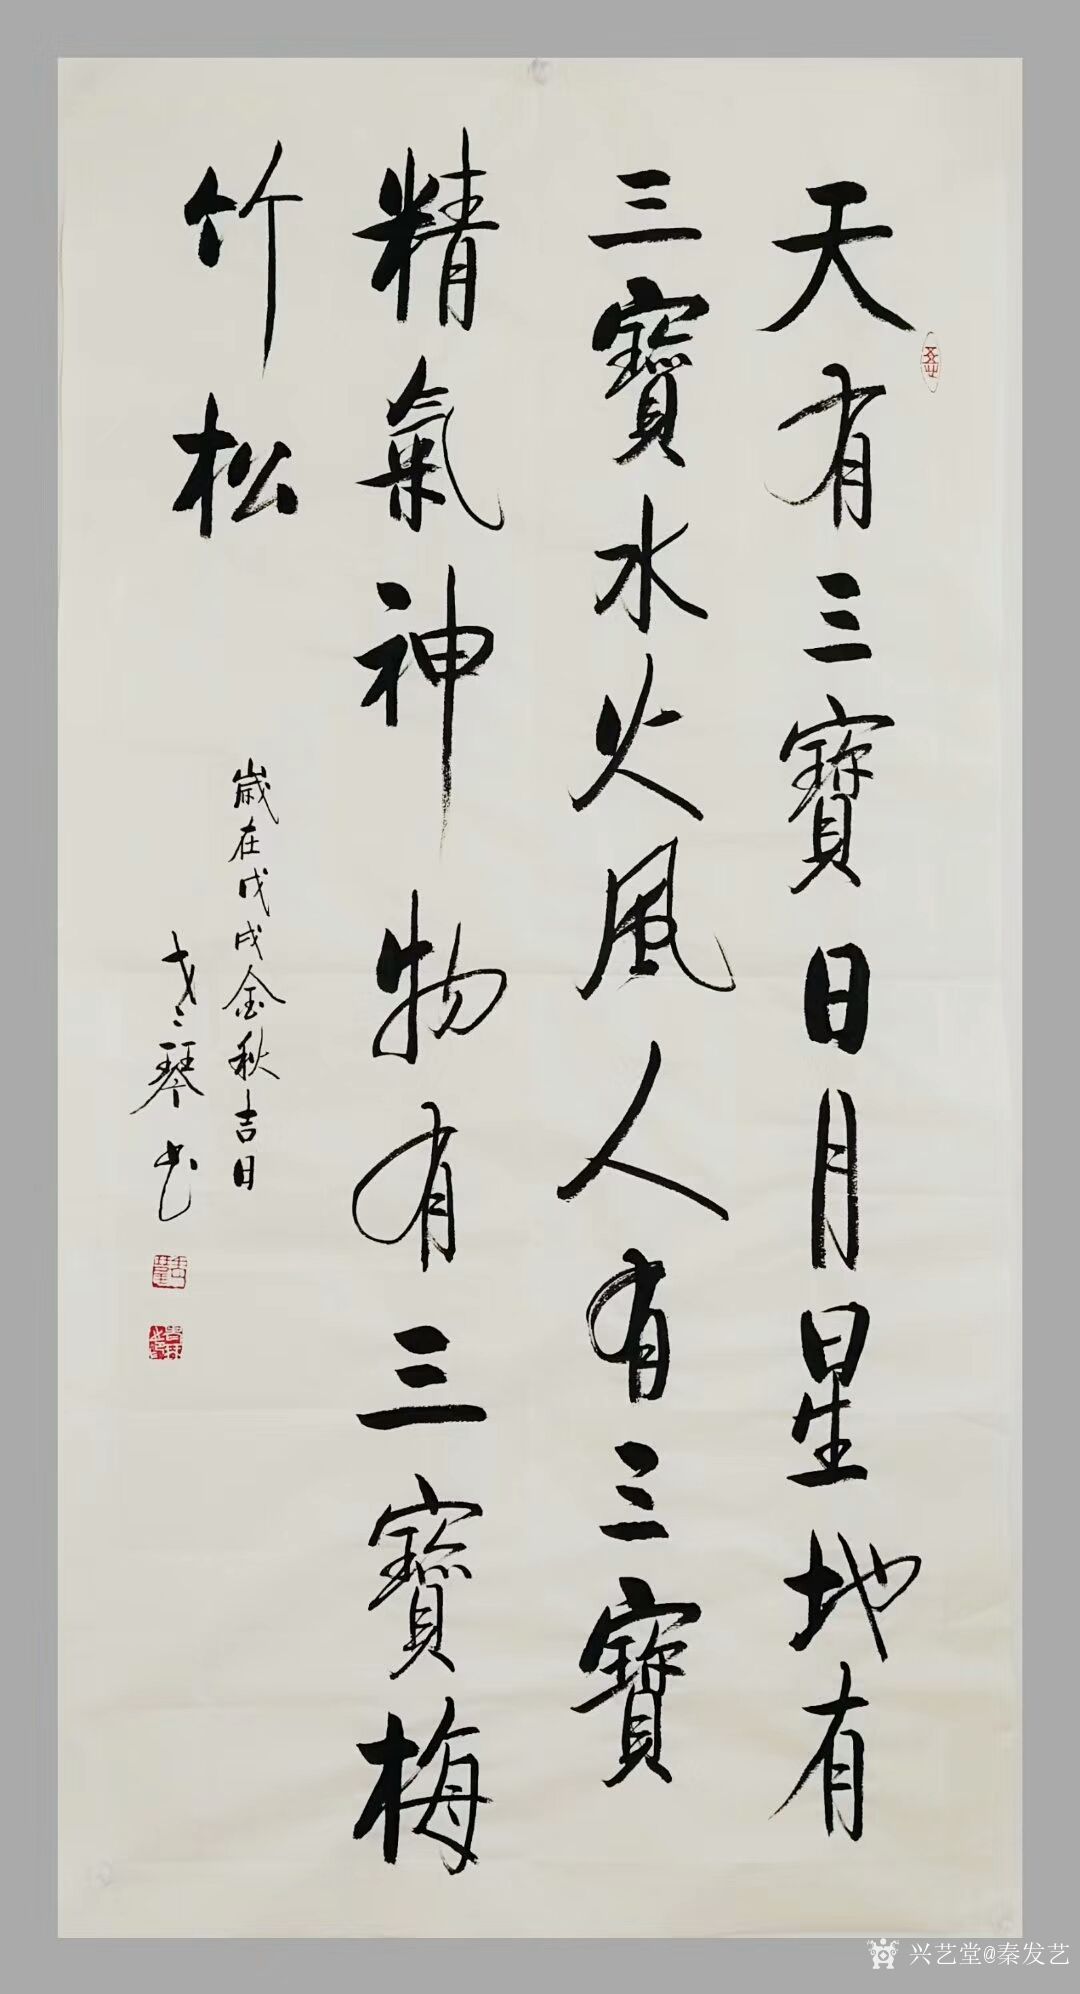 天有三寶日月星地有
三寶水火風人有三寶
精氣神物有三寶梅
竹松
歲在戊戌金秋吉日
琴书
兴艺堂@秦发艺